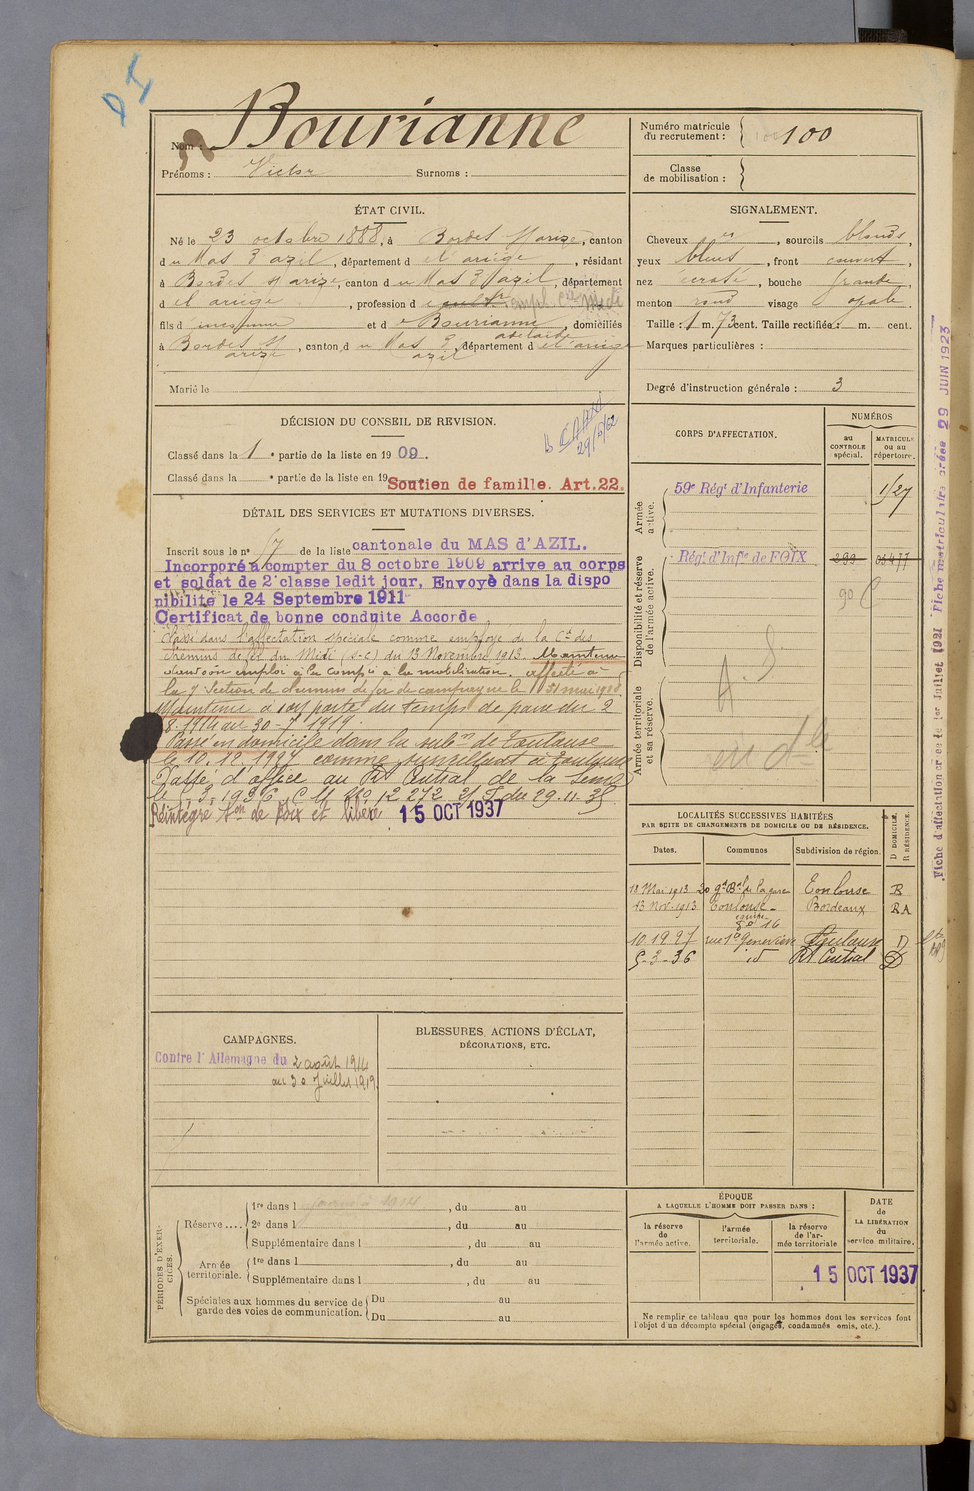 Nom : Bourianne
Prénoms : Victor Surnoms :
Numéro matricule
du recrutement : 100
Classe
de mobilisation :
ÉTAT CIVIL.
Né le 23 octobre 1888, à Bordes s/arize, canton
du Mas d'azil, département d el ariège, résidant
à Bordes s/arize, canton du Mas d'azil, département
d el ariège, profession d
fils d et de Bourianne adélaïde, domiciliés
à Bordes s/ arize, canton du Mas d azil, département d el ariège
Marié le
SIGNALEMENT.
Cheveux, sourcils blonds,
yeux bleus, front couvert,
nez, bouche grande,
menton rond visage ovale
Taille : 1 m. 73 cent. Taille rectifiée : m. cent.
Marques particulières :
Degré d'instruction générale : 3
DÉCISION DU CONSEIL DE REVISION.
Classé dans la 1e partie de la liste en 1909.
Classé dans la e partie de la liste en 19
Soutien de famille. Art. 22.
29/5/62
DÉTAIL DES SERVICES ET MUTATIONS DIVERSES.
Inscrit sous le n° 17 de la liste cantonale du MAS d'AZIL.
Incorporé à compter du 8 octobre 1909 arrive au corps
et soldat de 2e classe ledit jour, Envoyé dans la dispo
nibilité le 24 Septembre 1911
Certificat de bonne conduite Accorde
Classé dans l'affectation spéciale comme employé de la Cie des
chemins de fer du Midi (s.c) du 13 Novembre 1913. Maintenu
dans son emploi à la comp à la mobilisation. affecté à
la 7 Section de chemins de fer de campagne le 31 mai
Maintenu à son poste du temps de paix du 2
8.1914 au 30-7 1919.
Passé en domicile dans la subon de Toulouse
le 10.12.1927 comme surveillant à Toulouse
Passé d'office au Rt Central de la Seine
le 5.3.1936, C M No 12272 du 29.11.35
Réintégré Son de Foix et libéré 15 OCT 1937
CORPS D'AFFECTATION.
NUMÉROS
au
CONTROLE
spécial.
MATRICULE
ou au
répertoire.
Armée
active.
59e Régt d'Infanterie 1127
Disponibilité et réserve
de l'armée active.
Régt d'Infie de FOIX 299 03477
90 C
Armée territoriale
et sa réserve.
A. S
en dle
LOCALITÉS SUCCESSIVES HABITÉES
PAR SUITE DE CHANGEMENTS DE DOMICILE OU DE RÉSIDENCE.
Dates. Communes Subdivision de région. D DOMICILE. R RÉSIDENCE.
18 Mai 1913 20 gd Bd de la gare Toulouse R
13 Nov. 1913 Toulouse Bordeaux RA
10.1927 rue Ste Geneviève 16 Toulouse D
5-3-36 id Rt Central D
CAMPAGNES.
Contre l'Allemagne du 2 août 1914
au 30 Juillet 1919
BLESSURES, ACTIONS D'ÉCLAT,
DÉCORATIONS, ETC.
PÉRIODES D'EXERCICES.
Réserve .... 1re dans l , du au
2e dans l , du au
Supplémentaire dans l , du au
Armée
territoriale. 1re dans l , du au
Supplémentaire dans l , du au
Spéciales aux hommes du service de
garde des voies de communication. Du au
Du au
ÉPOQUE
A LAQUELLE L'HOMME DOIT PASSER DANS :
la réserve
de
l'armée active.
l'armée
territoriale.
la réserve
de l'ar-
mée territoriale
DATE
de
LA LIBÉRATION
du
service militaire.
15 OCT 1937
Ne remplir ce tableau que pour les hommes dont les services font
l'objet d'un décompte spécial (engagés, condamnés, omis, etc.).
Fiche d'affectation créée le 1er Juillet 1921 Fiche matriculaire créée 29 JUIN 1923